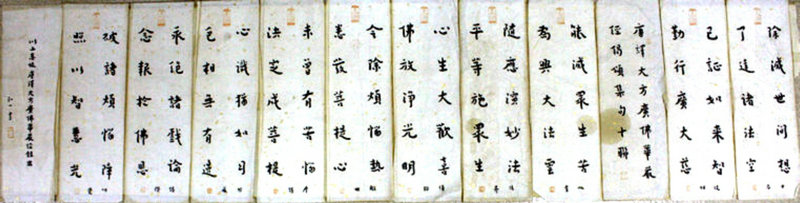 除滅世間想
了達諸法空
已證如來智
勤行廣大慈
唐譯大方廣佛華嚴
經偈頌集句十聯
能滅眾生苦
為興大法雲
隨應演妙法
平等施眾生
心生大歡喜
佛放淨光明
令除煩惱熱
悉發菩提心
未曾有苦惱
決定成菩提
心猶如日
色相無有邊
永絕諸戲論
念報於佛恩
破諸煩惱障
照以智慧光
以上唐譯大方廣佛華嚴經